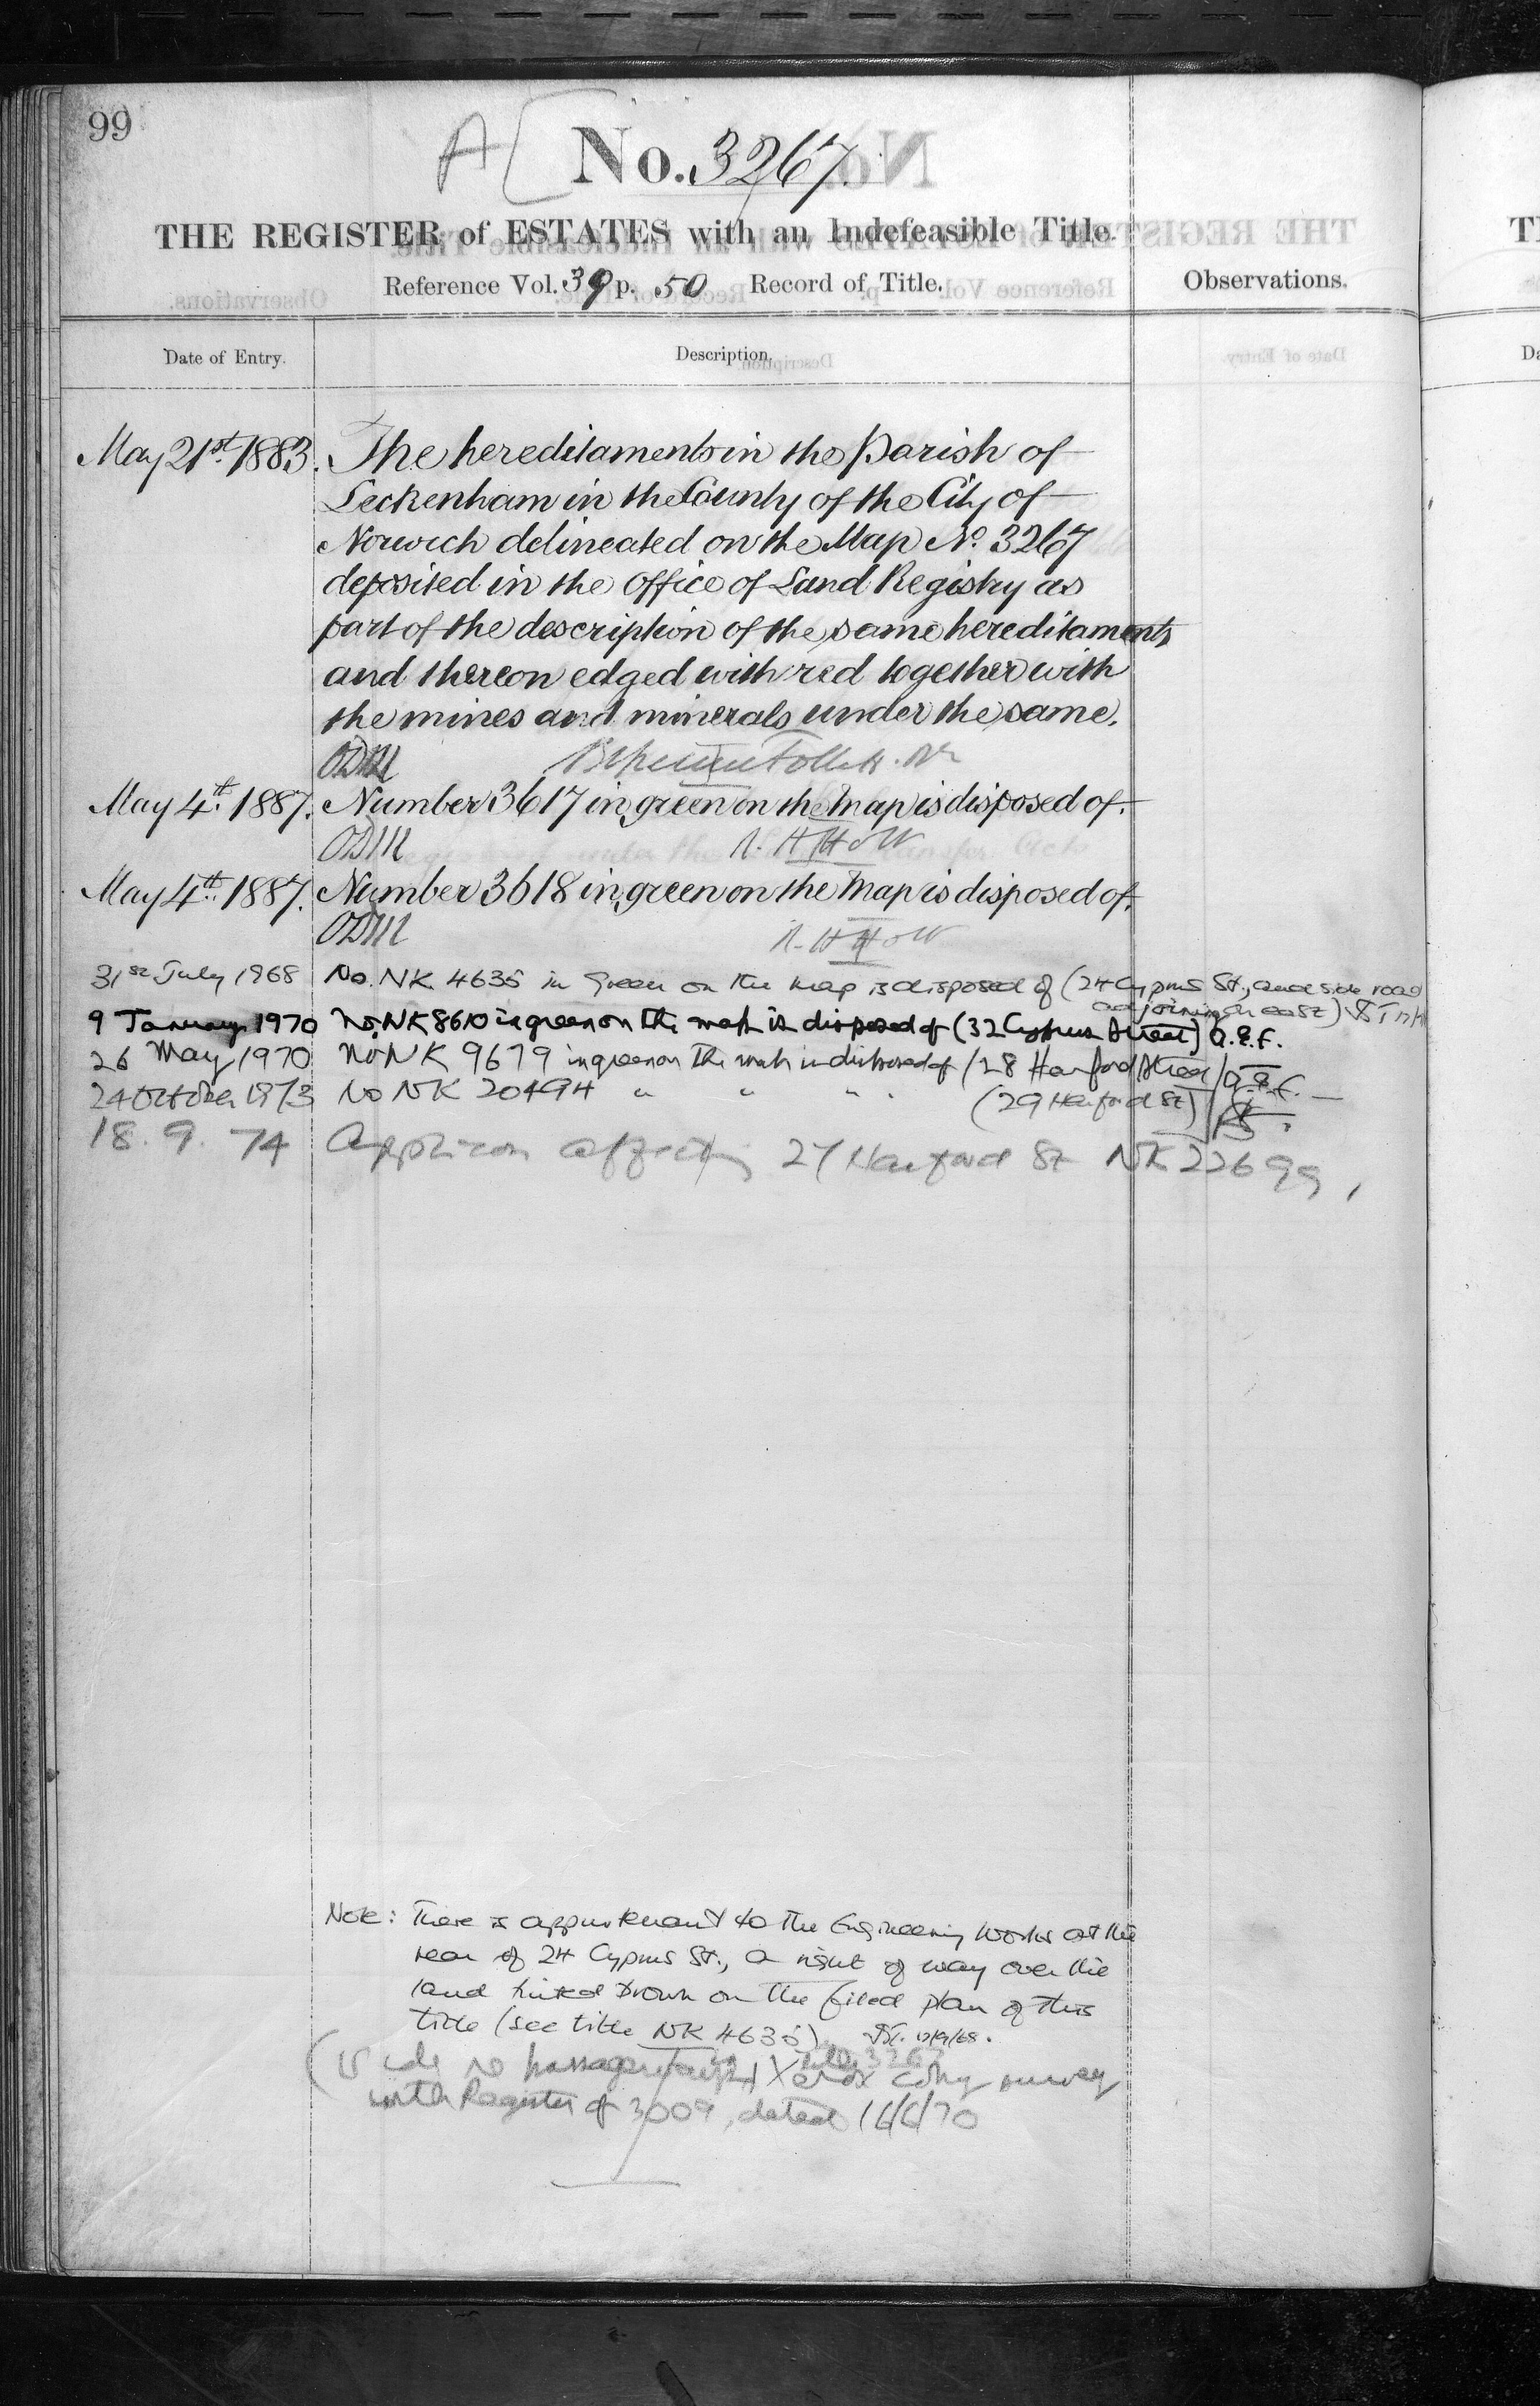 99
A
No. 3267.
THE REGISTER of ESTATES with an Indefeasible Title.
Reference Vol. 39 p. 50 Record of Title.
Observations.
Date of Entry.
Description.
May 21st 1883. The hereditaments in the Parish of
Leckenham in the County of the City of
Norwich delineated on the Map No. 3267
deposited in the Office of Land Registry as
part of the description of the same hereditaments
and thereon edged with red together with
the mines and minerals under the same.
ODM
May 4th. 1887. Number 3617 in green on the map is disposed of.
ODM R. H Holt
May 4th. 1887. Number 3618 in green on the map is disposed of.
ODM R. H Holt
31st July 1968 No. NK. 4635 in Green on the map is disposed of (24 Cyprus St., and side road
adjoining on east)
9 January 1970 No. NK 8610 in green on the map is disposed of (32 Cyprus Street) A.E.F.
26 May 1970 No NK 9679 in green on the map is disposed of (28 Harford Street) A.E.F.
24 October 1973 No NK 20494 " " " (29 Harford St)
18. 9. 74 Applicon affecting 27 Harford St NK 22699
Note: There is appurtenant to the Engineering Works at the
rear of 24 Cyprus St., a right of way over the
land tinted brown on the filed plan of this
title (see title NK 4635)
(Side no passageway Xerox copy survey
with Register of 3009, dated 16/6/70